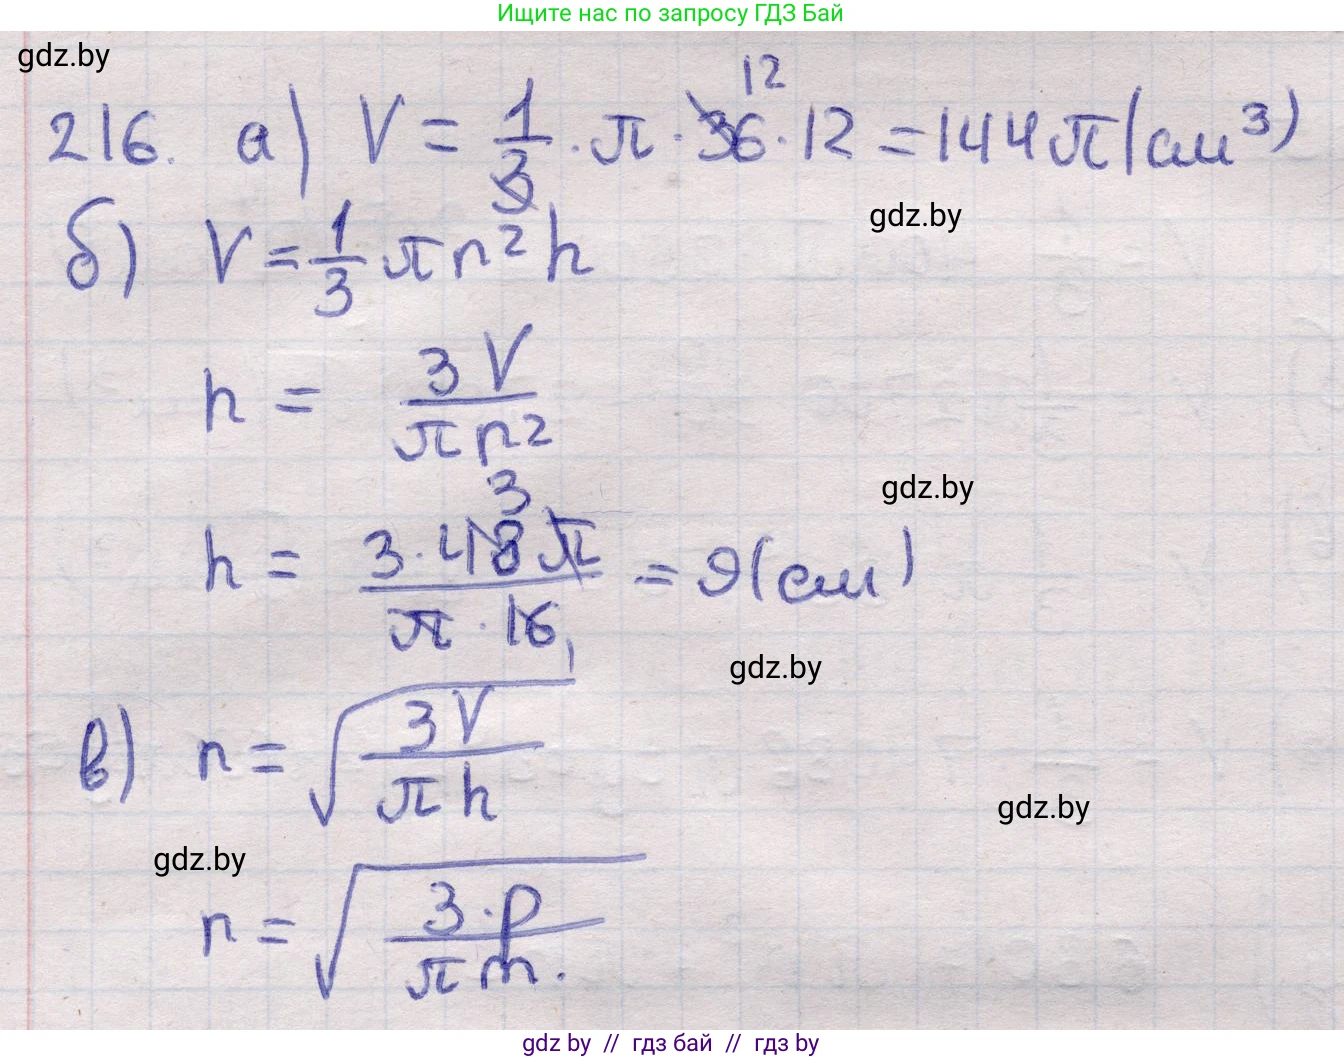 Ищите нас по запросу ГДЗ Бай
gdz.by
216. а) V = 1/3 · π · 36 · 12 = 144π (см³)
12
3
gdz.by
б) V = 1/3 πr²h
h = 3V/πr²
gdz.by
3
h = 3·48π/π·16 = 9(см)
1
gdz.by
в) r = √(3V/πh)
gdz.by
gdz.by
r = √(3·p/πm).
gdz by // гдз бай // гдз by